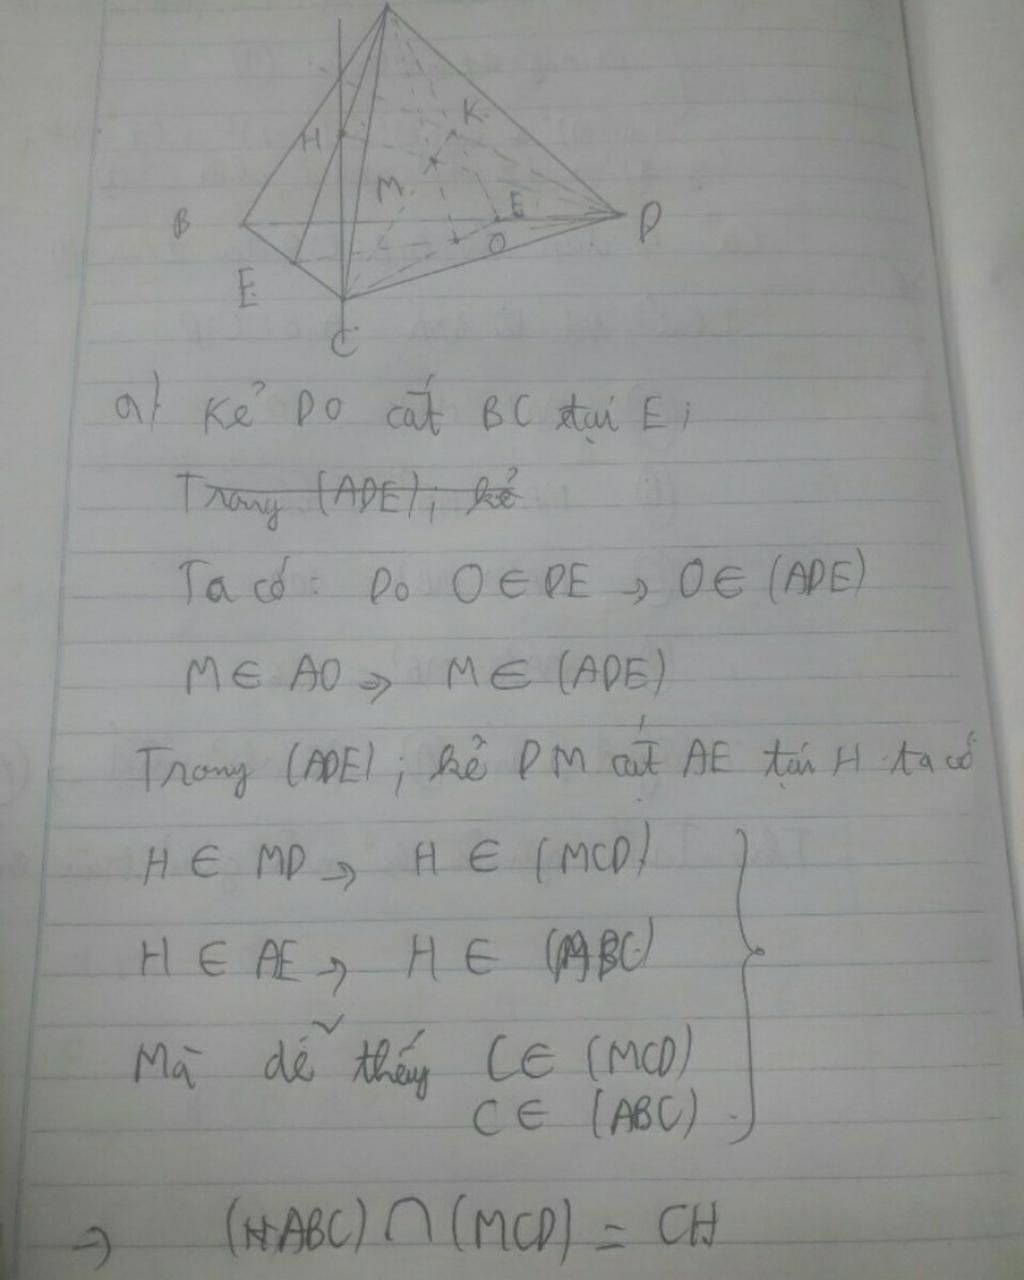 H
K
M
B
E
D
E
O
C
a) Kẻ DO cắt BC tại E;
Trong (ADE); kẻ
Ta có: Do O ∈ DE → O ∈ (ADE)
M ∈ AO ⇒ M ∈ (ADE)
Trong (ADE); kẻ DM cắt AE tại H ta có
H ∈ MD → H ∈ (MCD)
H ∈ AE → H ∈ (ABC)
Mà dễ thấy C ∈ (MCD)
C ∈ (ABC).
→ (ABC) ∩ (MCD) = CH